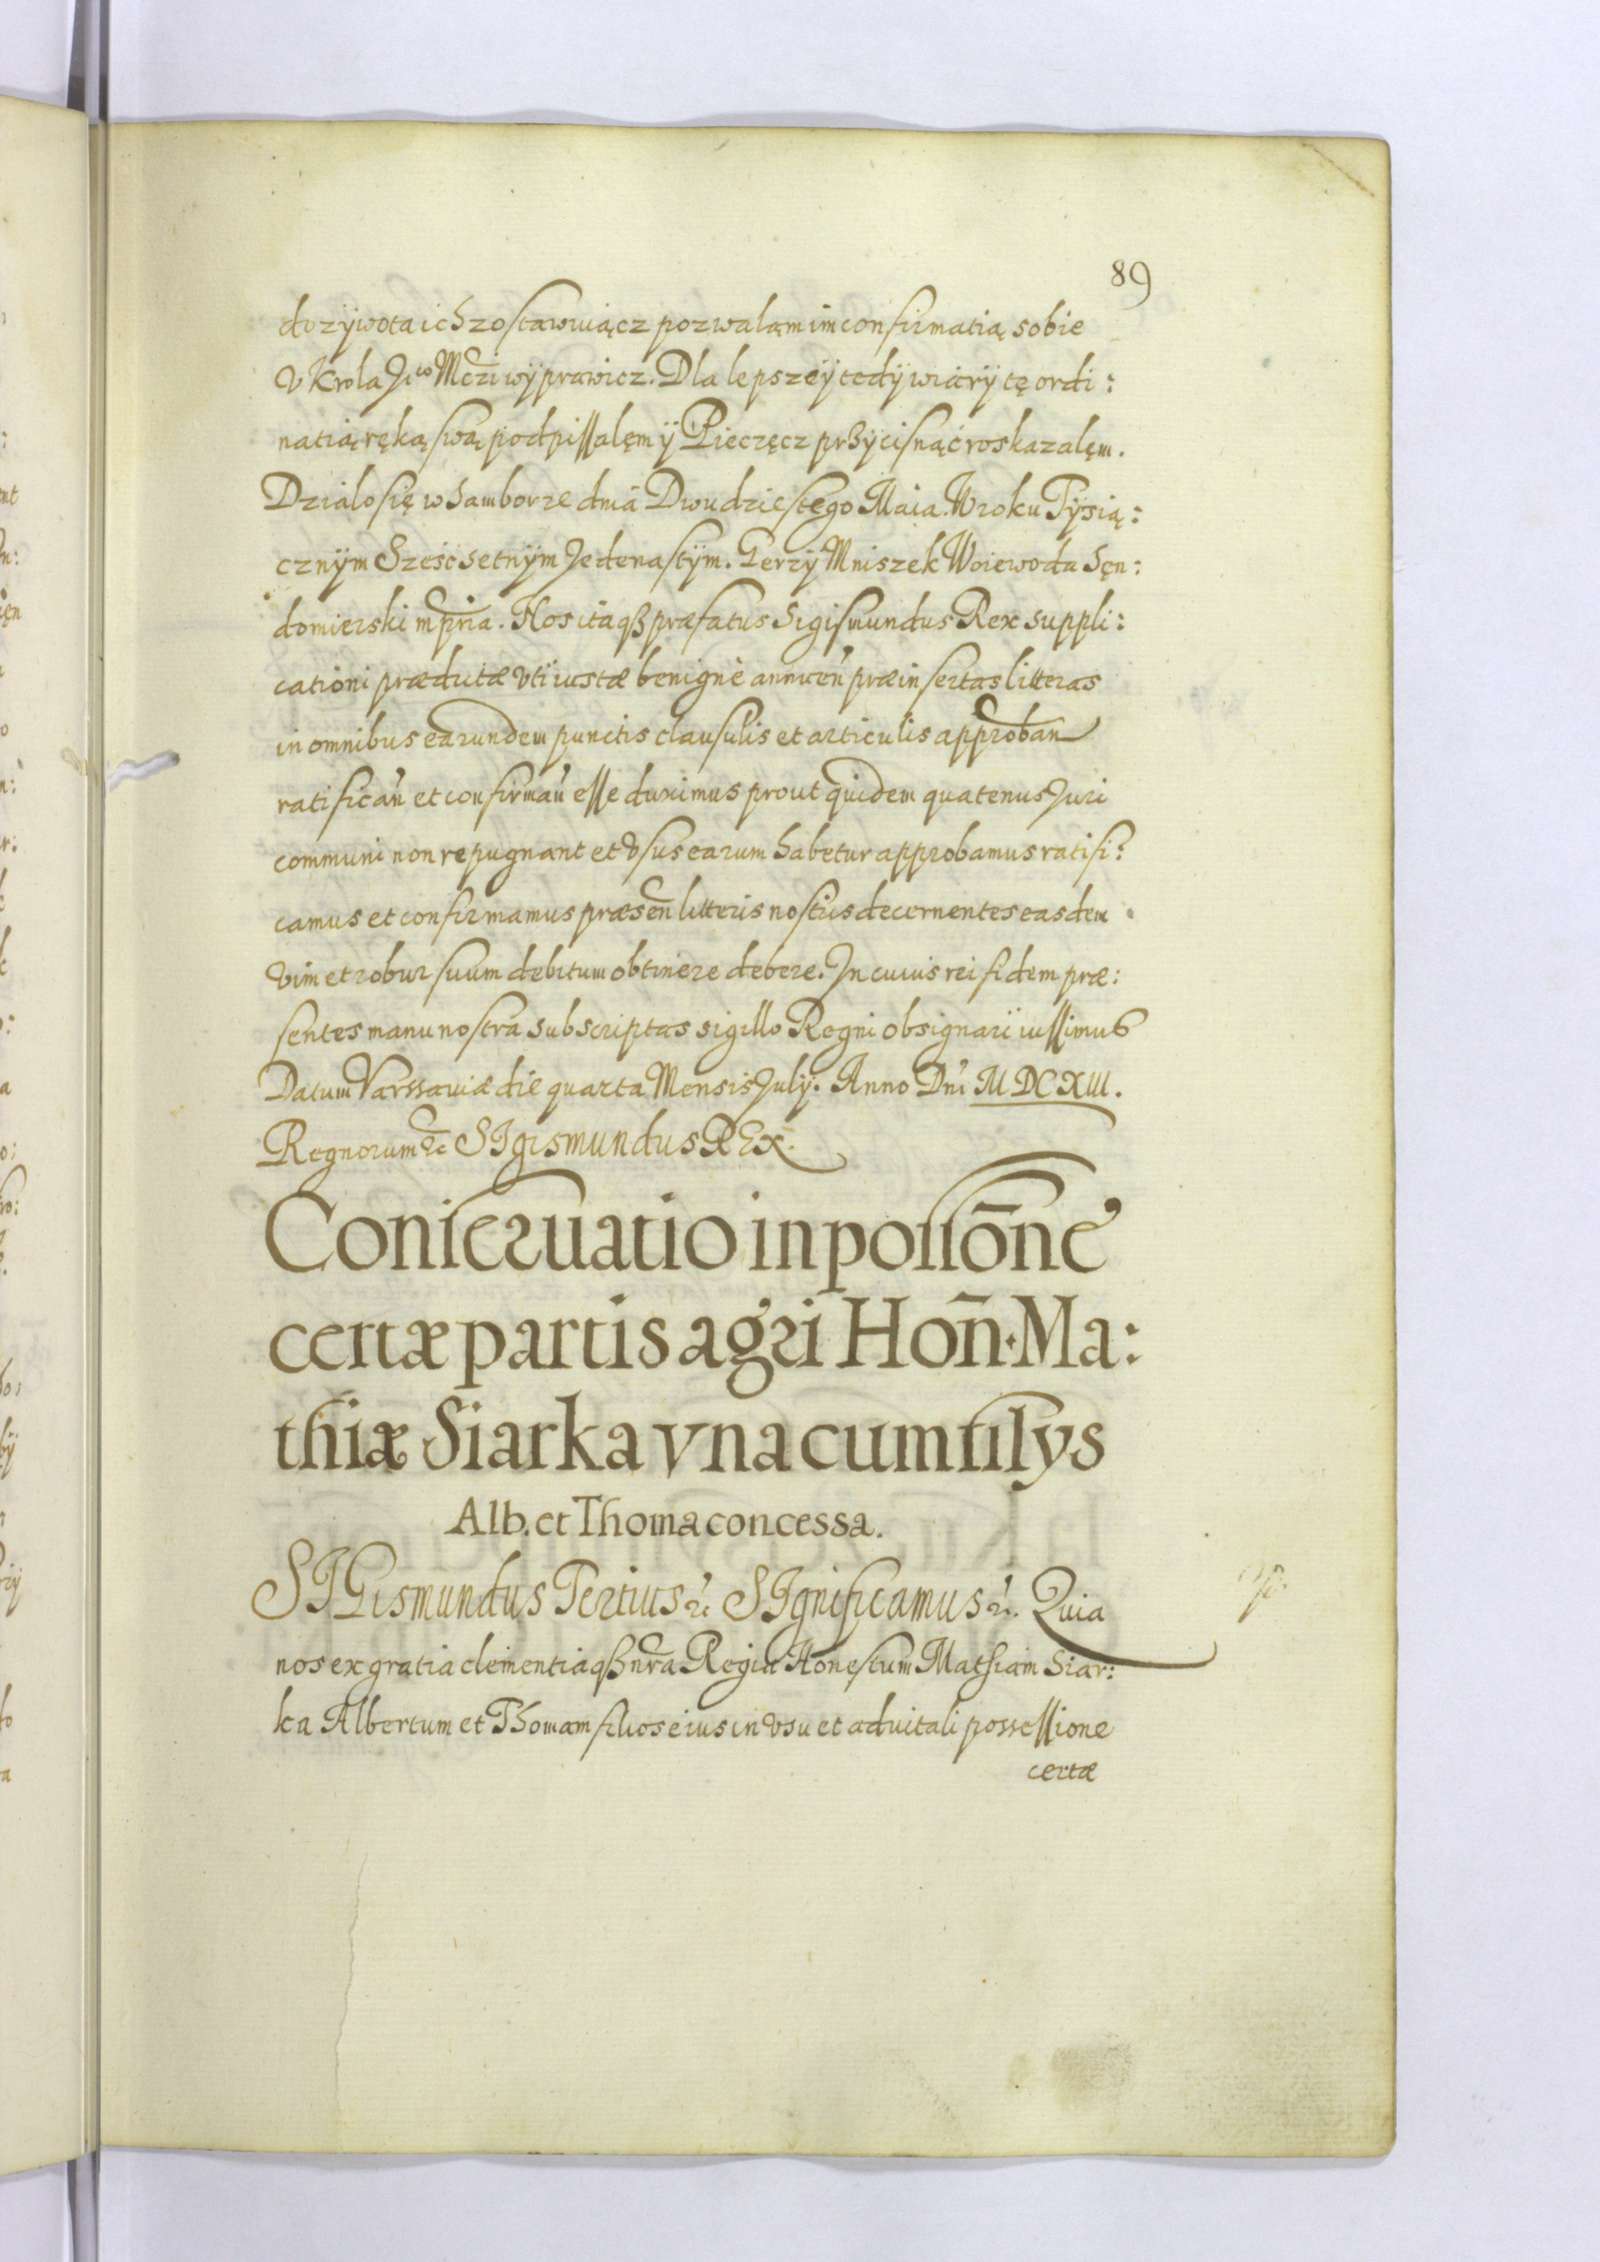 89
dozÿwota ich zostawuiącz pozwalam im confirmatią sobie
v Krola Jᵉᵒ Mczi wÿprawicz. Dla lepszeÿ tedÿ wiarÿ tę ordi:
natią ręką swą podpissalęm ÿ Pieczęcz przÿcisnąć roskazalęm.
Dzialo się w Samborze dnia Dwudziestego Maia. W roku Tÿsią:
cznÿm Sześcsetnÿm Jedenastÿm. Jerzÿ Mniszek Woiewoda Sęn:
domierski mpria. Nos itaqȝ præfatus Sigismundus Rex suppli:
cationi prædictæ vti iustæ benignè annuen̄ præinsertas litteras
in omnibus earundem punctis clausulis et articulis approban̄
ratifican̄ et confirman̄ esse duximus prout quidem quatenus Juri
communi non repugnant et vsus earum habetur approbamus ratifi:
camus et confirmamus præsen̄ litteris nostris decernentes easdem
vim et robur suum debitum obtinere debere. In cuius rei fidem præ:
sentes manu nostra subscriptas sigillo Regni obsignari iussimus
Datum Varssaviæ die quarta Mensis July. Anno Dn̄i MDCXIII.
Regnorum &c SIgismundus REx.
Conseruatio in possōne
certæ partis agri Hon̄. Ma:
thiæ Siarka vna cum filys
Alb. et Thoma concessa.
SIGismundus Tertius &c. SIgnificamus &c. Quia
nos ex gratia clementiaqȝ nr̄a Regia Honestum Mathiam Siar:
ka Albertum et Thomam filios eius in vsu et aduitali possessione
certæ